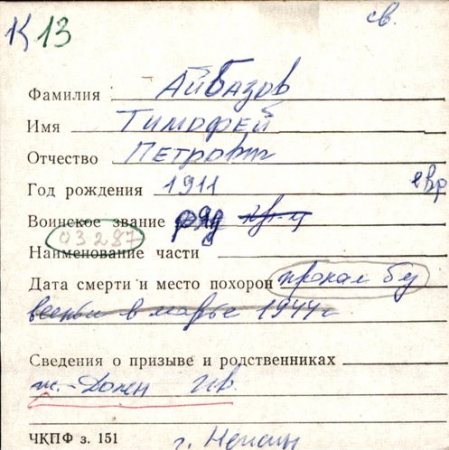 К 13 св.
Фамилия Айбазов
Имя Тимофей
Отчество Петрович
Год рождения 1911 евр
Воинское звание ряд
03287
Наименование части
Дата смерти и место похорон пропал без
вести в марте 1944 г
Сведения о призыве и родственниках
ж.-
ЧКПФ з. 151 г.